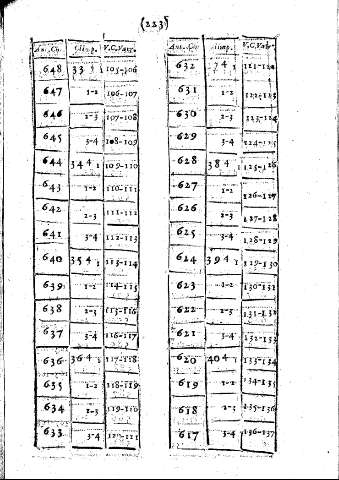 (223)
An. Cy. Olimp. V.C. Varr.
648 33 105-106
647 1-2 106-107
646 2-3 107-108
645 3-4 108-109
644 34 4 1 109-110
643 1-2 110-111
642 2-3 111-112
641 3-4 112-113
640 35 4 1 113-114
639 1-2 114-115
638 2-3 115-116
637 3-4 116-117
636 36 4 1 117-118
635 1-2 118-119
634 2-3 119-120
633 3-4 120-121
Olimp. V.C. Varr.
632 121-122
631 1-2 122-123
630 2-3 123-124
629 3-4 124-125
628 38 4 1 125-126
627 1-2 126-127
626 2-3 127-128
625 3-4 128-129
624 39 4 1 129-130
623 1-2 130-131
622 2-3 131-132
621 3-4 132-133
620 40 4 1 133-134
619 1-2 134-135
618 2-3 135-136
617 3-4 136-137